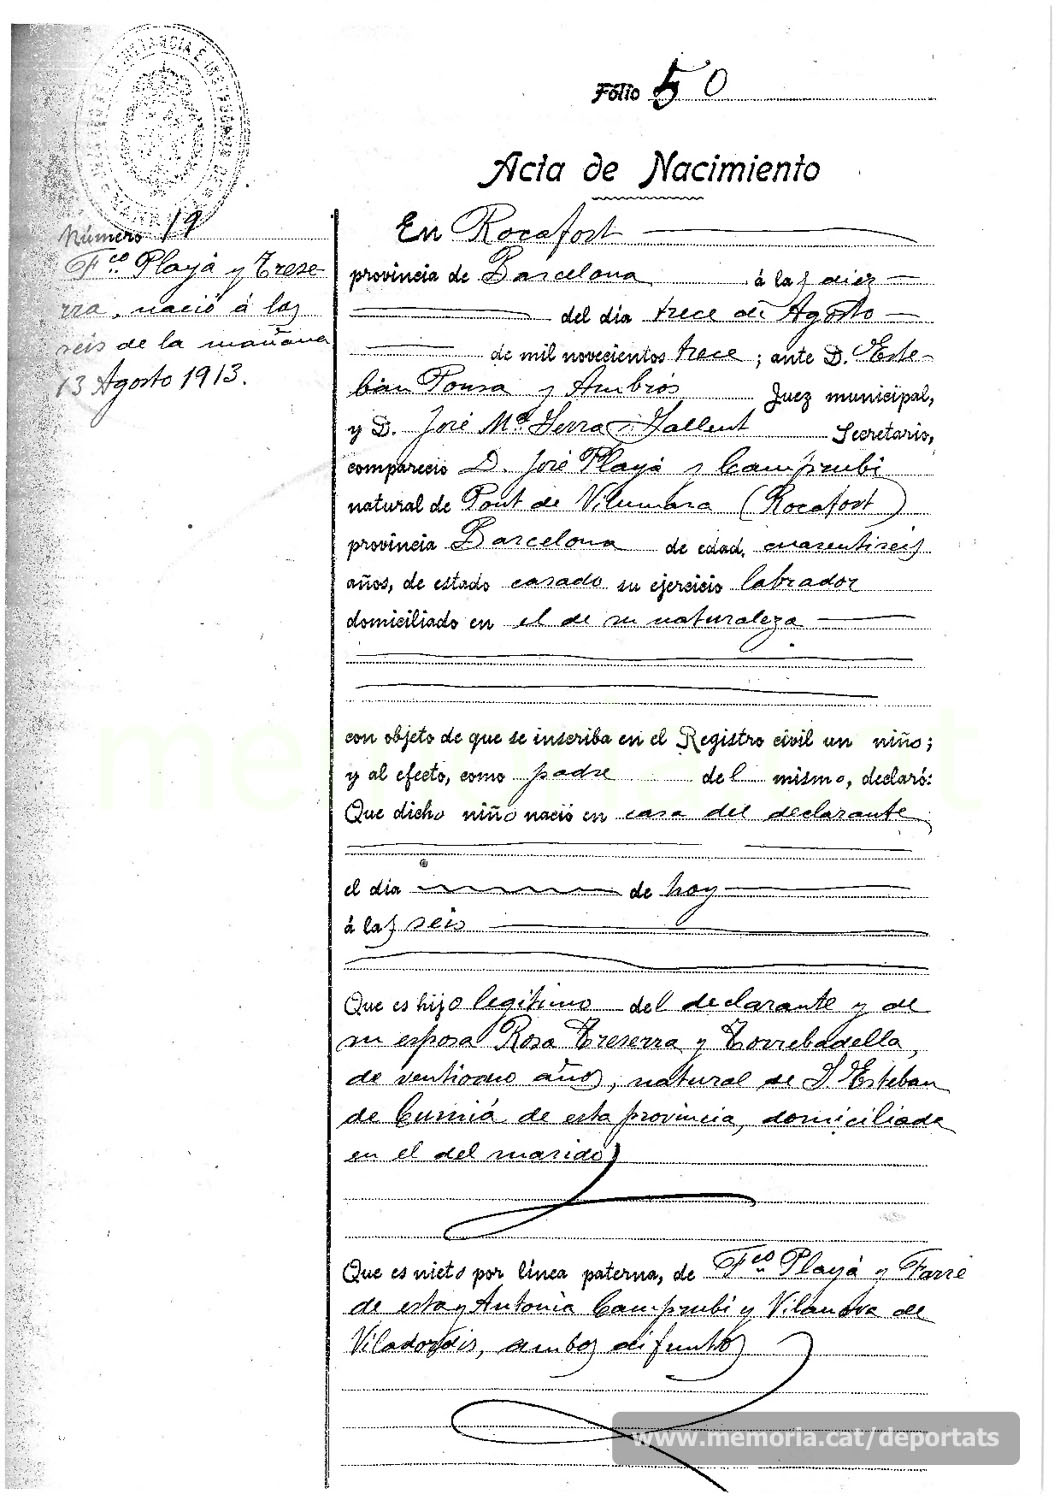 Folio 50
Acta de Nacimiento
Número 19
Fco Playá y Trese-
rra, nació á las
seis de la mañana
13 Agosto 1913.
En Rocafort
provincia de Barcelona á las diez
del día trece de Agosto
de mil novecientos trece; ante D. Este-
ban Pousa y Ambrós Juez municipal,
y D. José Mª Serra Sallent Secretario,
compareció D. José Playá y Camprubi
natural de Pont de Vilumara (Rocafort)
provincia Barcelona de edad, cuarentiseis
años, de estado casado su ejercicio labrador
domiciliado en el de su naturaleza
con objeto de que se inscriba en el Registro civil un niño;
y al efecto, como padre del mismo, declaró:
Que dicho niño nació en casa del declarante
el día de hoy
á las seis
Que es hijo legítimo del declarante y de
su esposa Rosa Treserra y Torrebadella,
de años, natural de S. Esteban
de de esta provincia, domiciliada
en el del marido
Que es nieto por línea paterna, de Fco Playá y Farré
de esta y Antonia Camprubi y Vilanova de
Viladordis, ambos difuntos
www.memoria.cat/deportats